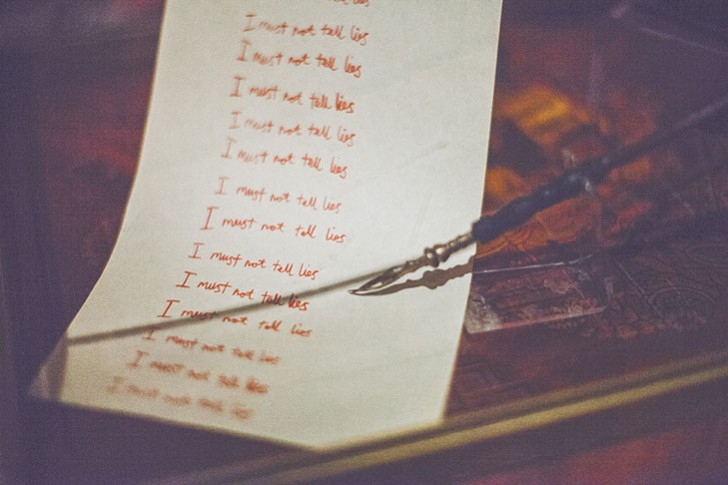 I must not tell lies
I must not tell lies
I must not tell lies
I must not tell lies
I must not tell lies
I must not tell lies
I must not tell lies
I must not tell lies
I must not tell lies
I must not tell lies
I must not tell lies
I must not tell lies
I must not tell lies